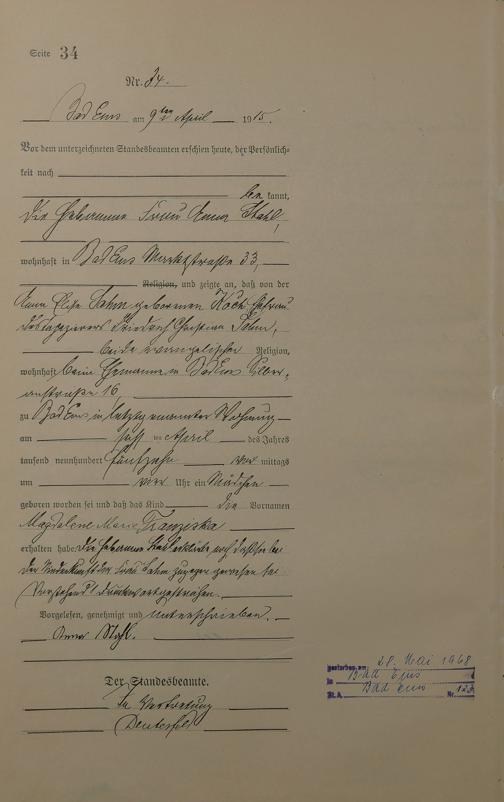 Seite 34
Nr. 34.
Bad Ems am 9ten April 1915.
Vor dem unterzeichneten Standesbeamten erschien heute, der Persönlich-
keit nach
be kannt,
die Hebamme Frau Anna Stahl,
wohnhaft in Bad Ems Marktstraße 33,
Religion, und zeigte an, daß von der
Anna Elise geborenen Koch Ehefrau
des Tapezierers Friedrich Christian
beide evangelischer Religion,
wohnhaft beim Ehemanne in Bad Ems Silber-
austraße 16
zu Bad Ems in letztgenannter Wohnung
am im April des Jahres
tausend neunhundert fünfzehn vor mittags
um vier Uhr ein Mädchen
geboren worden sei und daß das Kind die Vornamen
Magdalene Marie Franziska
erhalten habe. Die Hebamme Stahl erklärte, noch daß sie bei
der Niederkunft der Frau zugegen gewesen sei.
Vorstehend 1 Druckwort gestrichen.
Vorgelesen, genehmigt und unterschrieben.
Anna Stahl.
Der Standesbeamte.
In Vertretung
gestorben am 28. Mai 1968
in Bad Ems
St.A. Bad Ems Nr.